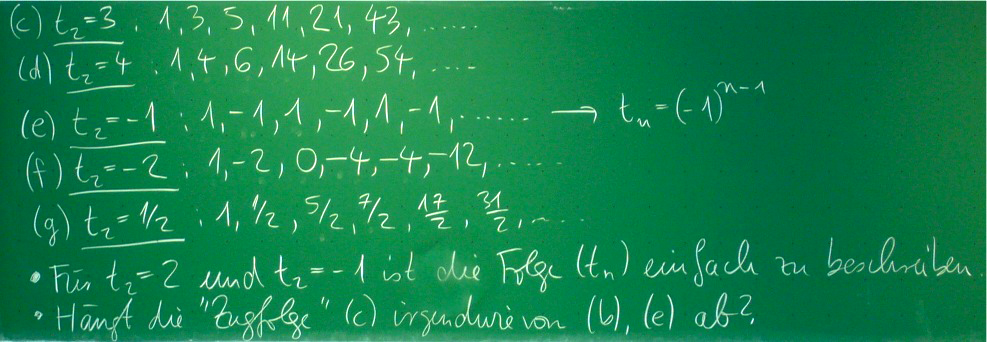 (c) t₂=3 : 1, 3, 5, 11, 21, 43, ......
(d) t₂=4 : 1, 4, 6, 14, 26, 54, .....
(e) t₂=-1 : 1, -1, 1, -1, 1, -1, ...... → tₙ=(-1)ⁿ⁻¹
(f) t₂=-2 : 1, -2, 0, -4, -4, -12, ......
(g) t₂=1/2 : 1, 1/2, 5/2, 7/2, 17/2, 31/2, ......
• Für t₂=2 und t₂=-1 ist die Folge (tₙ) einfach zu beschreiben.
• Hängt die "Zugfolge" (c) irgendwie von (b), (e) ab?